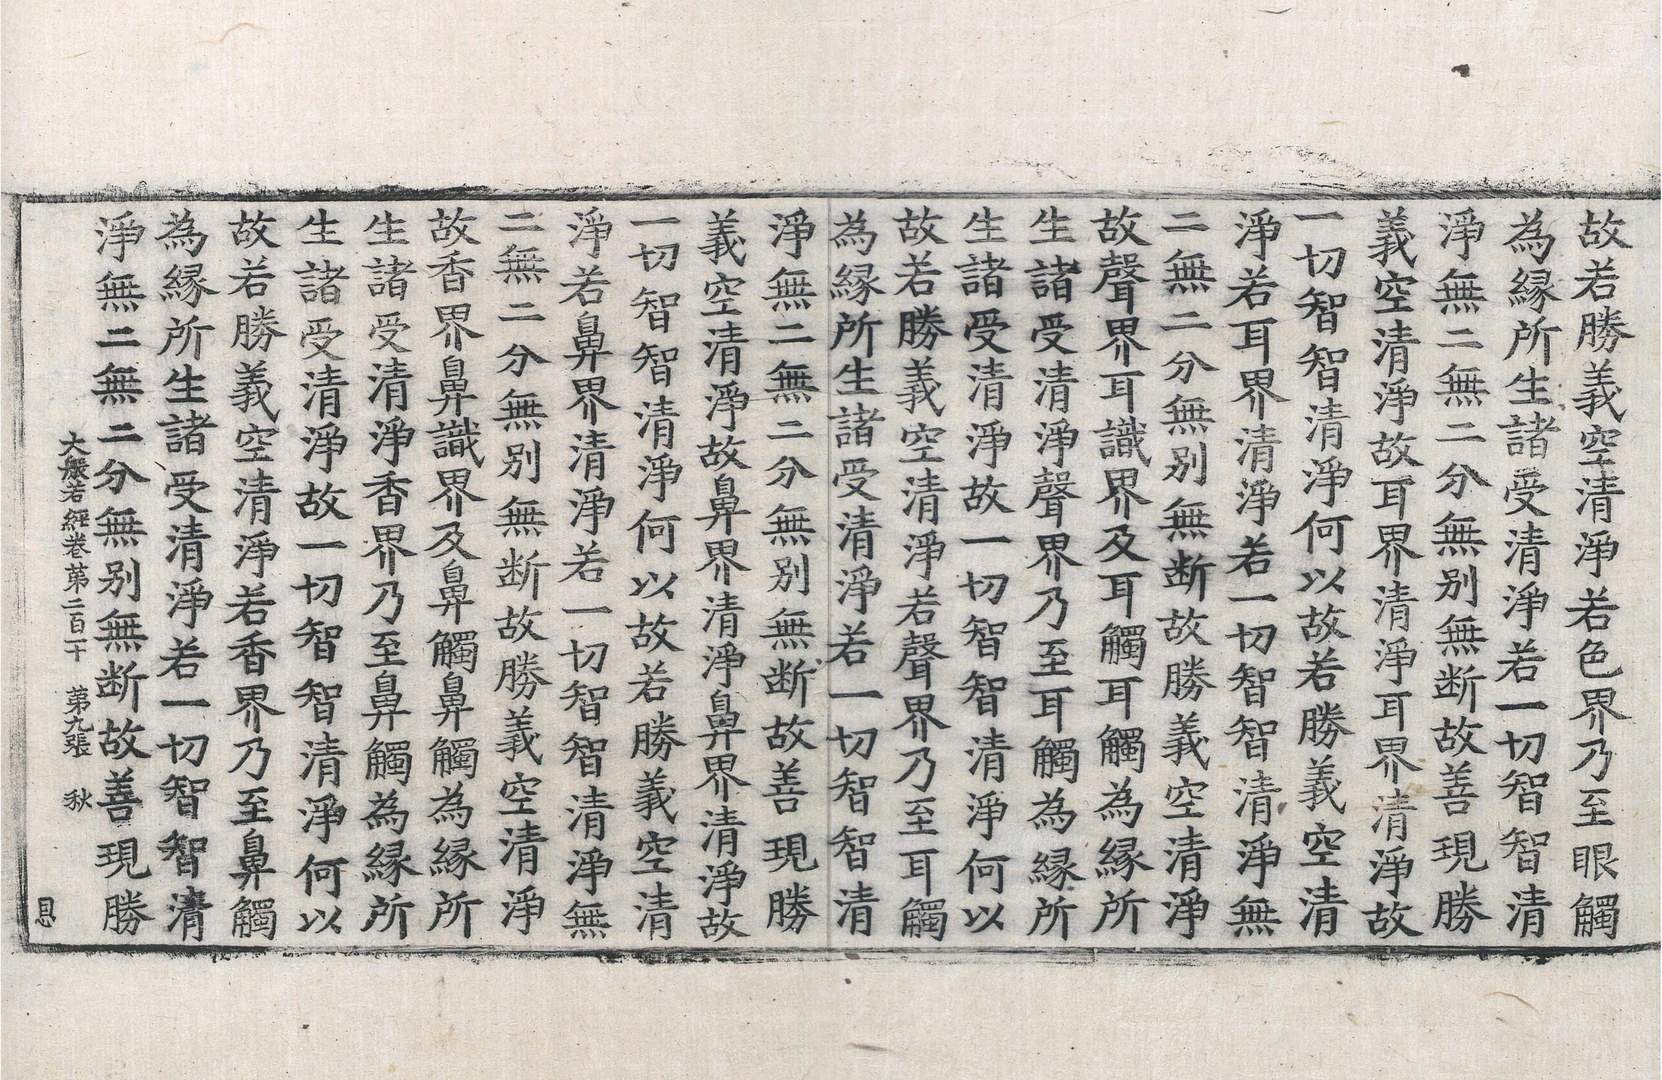 故若勝義空清淨若色界乃至眼觸
為縁所生諸受清淨若一切智智清
淨無二無二分無別無断故善現勝
義空清淨故耳界清淨耳界清淨故
一切智智清淨何以故若勝義空清
淨若耳界清淨若一切智智清淨無
二無二分無別無断故勝義空清淨
故聲界耳識界及耳觸耳觸為縁所
生諸受清淨聲界乃至耳觸為縁所
生諸受清淨故一切智智清淨何以
故若勝義空清淨若聲界乃至耳觸
為縁所生諸受清淨若一切智智清
淨無二無二分無別無断故善現勝
義空清淨故鼻界清淨鼻界清淨故
一切智智清淨何以故若勝義空清
淨若鼻界清淨若一切智智清淨無
二無二分無別無断故勝義空清淨
故香界鼻識界及鼻觸鼻觸為縁所
生諸受清淨香界乃至鼻觸為縁所
生諸受清淨故一切智智清淨何以
故若勝義空清淨若香界乃至鼻觸
為縁所生諸受清淨若一切智智清
淨無二無二分無別無断故善現勝
大般若經卷第二百一十 第九張 秋